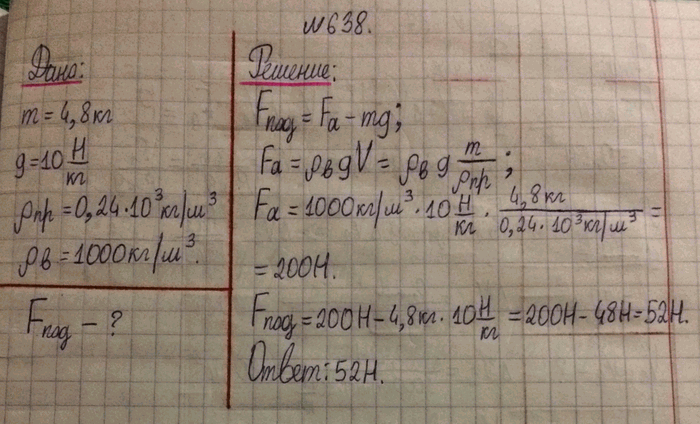 №638.
Дано:
m = 4,8 кг
g = 10 Н/кг
ρпр = 0,24·10³ кг/м³
ρв = 1000 кг/м³.
Fпод – ?
Решение:
Fпод = Fа – mg;
Fа = ρв g V = ρв g m/ρпр;
Fа = 1000 кг/м³ · 10 Н/кг · 4,8 кг/0,24·10³ кг/м³ =
= 200Н.
Fпод = 200Н – 4,8 кг · 10 Н/кг = 200Н – 48Н = 52Н.
Ответ: 52Н.